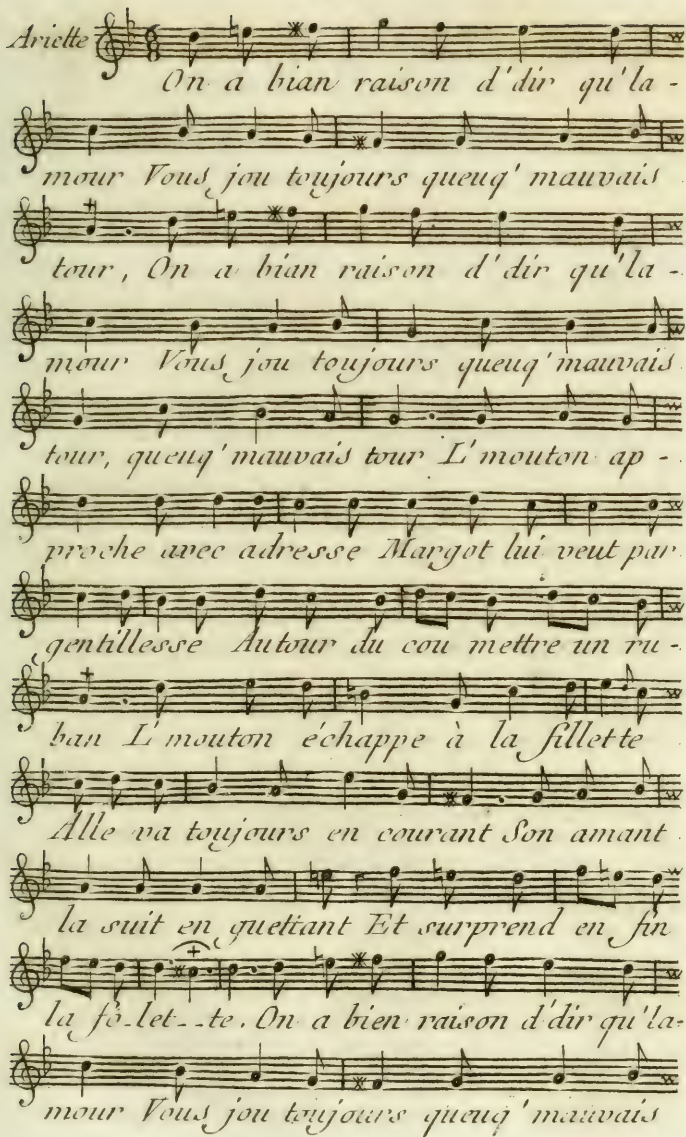 Ariette
On a bian raison d'dir qu'la-
mour Vous jou toujours queuq' mauvais
tour, On a bian raison d'dir qu'la-
mour Vous jou toujours queuq' mauvais
tour, queuq' mauvais tour L'mouton ap-
proche avec adresse Margot lui veut par
gentillesse Autour du cou mettre un ru-
ban L'mouton échappe à la fillette
Alle va toujours en courant Son amant
la suit en guettant Et surprend en fin
la fo-let--te. On a bien raison d'dir qu'la-
mour Vous jou toujours queuq' mauvais